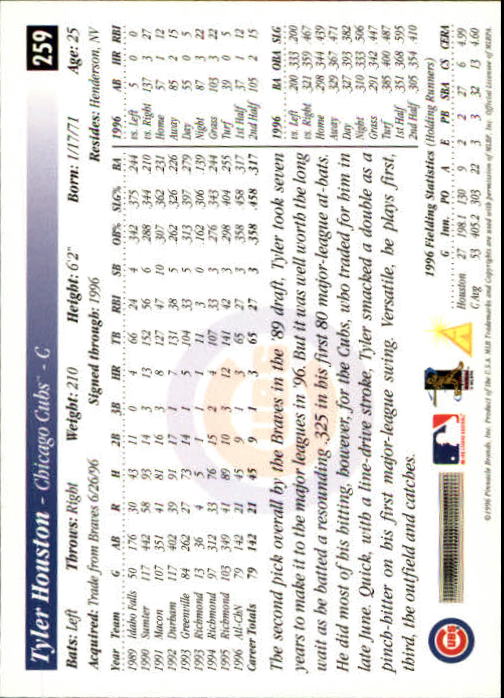 259
Tyler Houston - Chicago Cubs™ - C
Bats: Left Throws: Right Weight: 210 Height: 6'2" Born: 1/17/71 Age: 25
Acquired: Trade from Braves 6/26/96 Signed through: 1996 Resides: Henderson, NV
Year Team G AB R H 2B 3B HR TB RBI SB OB% SLG% BA
1989 Idaho Falls 50 176 30 43 11 0 4 66 24 4 .342 .375 .244
1990 Sumter 117 442 58 93 14 3 13 152 56 6 .288 .344 .210
1991 Macon 107 351 41 81 16 3 8 127 47 10 .307 .362 .231
1992 Durham 117 402 39 91 17 1 7 131 38 5 .262 .326 .226
1993 Greenville 84 262 27 73 14 1 5 104 33 5 .313 .397 .279
1993 Richmond 13 36 4 5 1 1 1 11 3 0 .162 .306 .139
1994 Richmond 97 312 33 76 15 2 4 107 33 3 .276 .343 .244
1995 Richmond 103 349 41 89 10 3 12 141 42 3 .298 .404 .255
1996 Atl-ChN 79 142 21 45 9 1 3 65 27 3 .358 .458 .317
Career Totals 79 142 21 45 9 1 3 65 27 3 .358 .458 .317
1996 AB HR RBI BA OBA SLG
vs. Left 5 0 0 .200 .333 .200
vs. Right 137 3 27 .321 .359 .467
Home 57 1 12 .298 .344 .439
Away 85 2 15 .329 .367 .471
Day 55 0 5 .327 .393 .382
Night 87 3 22 .310 .333 .506
Grass 103 3 22 .291 .342 .447
Turf 39 0 5 .385 .400 .487
1st Half 37 1 12 .351 .368 .595
2nd Half 105 2 15 .305 .354 .410
The second pick overall by the Braves in the '89 draft, Tyler took seven
years to make it to the major leagues in '96. But it was well worth the long
wait as he batted a resounding .325 in his first 80 major-league at-bats.
He did most of his hitting, however, for the Cubs, who traded for him in
late June. Quick, with a line-drive stroke, Tyler smacked a double as a
pinch-hitter on his first major-league swing. Versatile, he plays first,
third, the outfield and catches.
1996 Fielding Statistics (Holding Runners)
G Inn. PO A E PB SBA CS CERA
Houston 27 198.1 130 9 2 2 27 6 4.99
C Avg 53 405.2 303 22 3 3 32 13 4.60
CUBS
©1996 Pinnacle Brands, Inc. Product of the U.S.A. MLB Trademarks and Copyrights are used with permission of MLBP. Official Licensee of MLBPA.